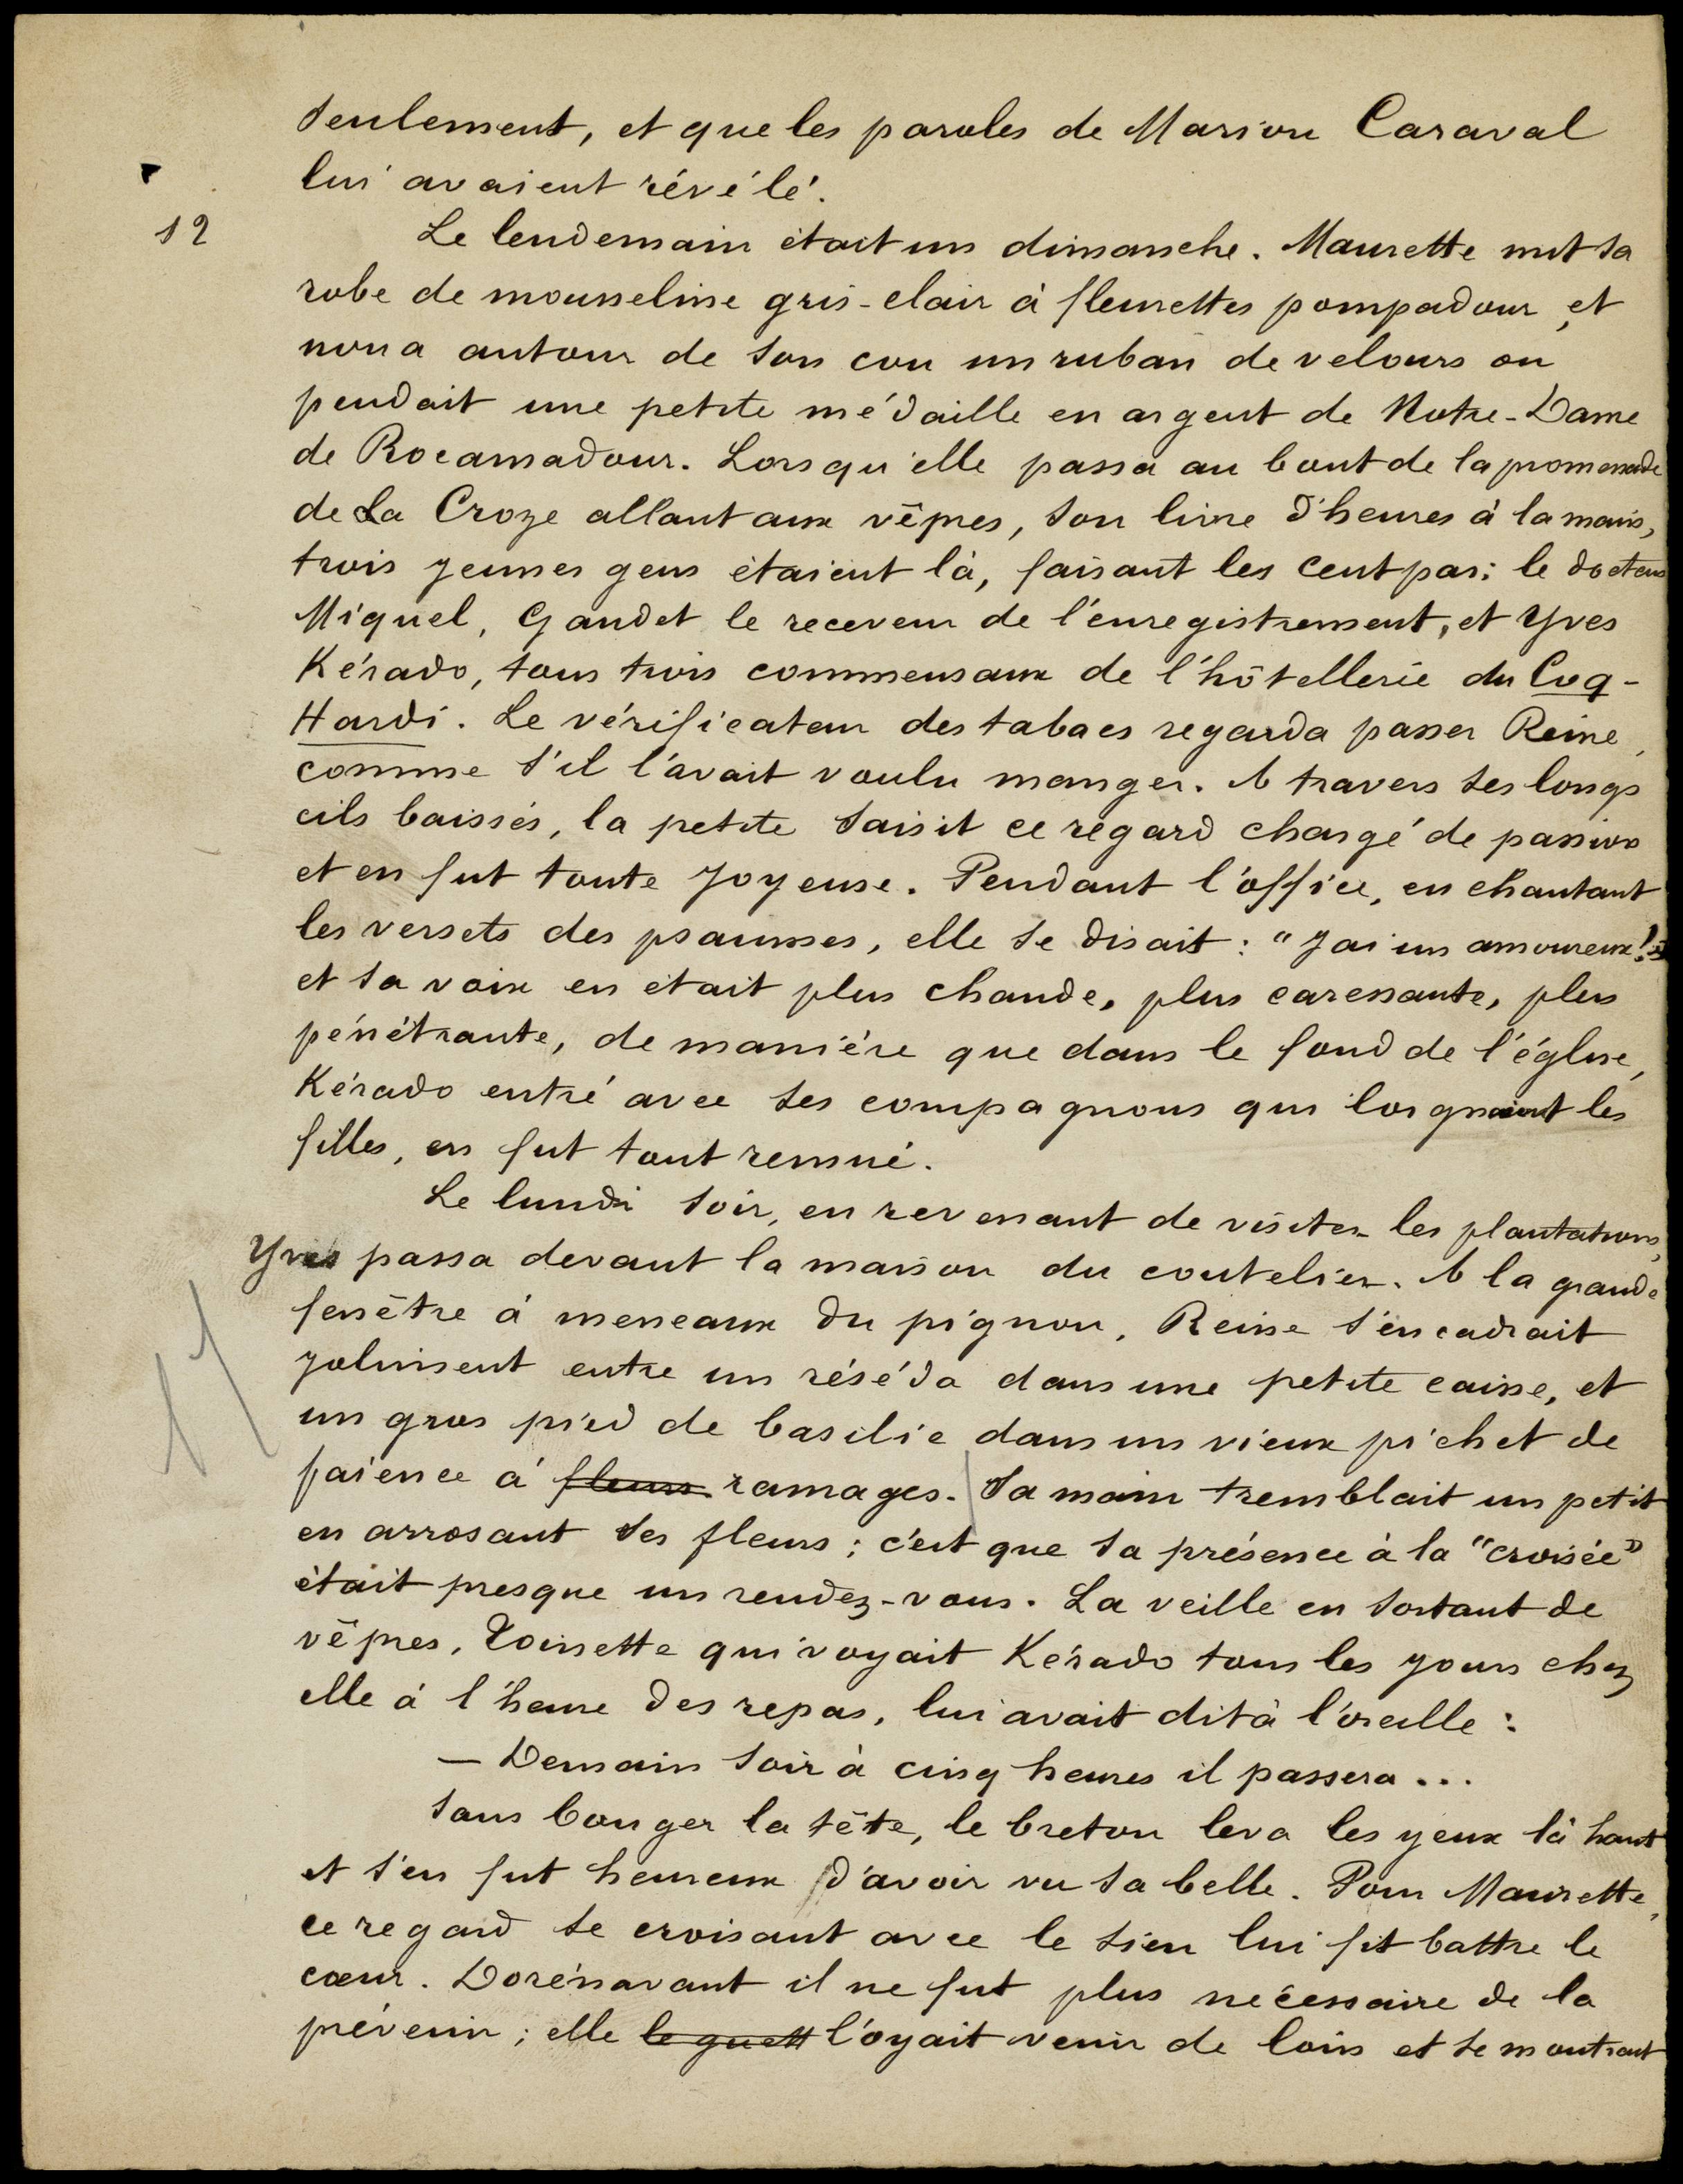 seulement, et que les paroles de Marion Caraval
lui avaient révélé.
12
Le lendemain était un dimanche. Maurette mit sa
robe de mousseline gris-clair à fleurettes pompadour, et
noua autour de son cou un ruban de velours où
pendait une petite médaille en argent de Notre-Dame
de Rocamadour. Lorsqu'elle passa au bout de la promenade
de La Croze allant aux vêpres, son livre d'heures à la main,
trois jeunes gens étaient là, faisant les cent pas: le docteur
Miquel, Gaudet le receveur de l'enregistrement, et Yves
Kérado, tous trois commensaux de l'hôtellerie du Coq-
Hardi. Le vérificateur des tabacs regarda passer Reine,
comme s'il l'avait voulu manger. A travers ses longs
cils baissés, la petite saisit ce regard chargé de passion
et en fut toute joyeuse. Pendant l'office, en chantant
les versets des psaumes, elle se disait: "J'ai un amoureux!"
et sa voix en était plus chaude, plus caressante, plus
pénétrante, de manière que dans le fond de l'église,
Kérado entré avec ses compagnons qui lorgnaient les
filles, en fut tout remué.
Le lundi soir, en revenant de visiter les plantations,
Yves passa devant la maison du coutelier. A la grande
fenêtre à meneaux du pignon, Reine s'encadrait
joliment entre un réséda dans une petite caisse, et
un gros pied de basilic dans un vieux pichet de
17
faïence à fleurs ramages. Sa main tremblait un petit
en arrosant ses fleurs; c'est que sa présence à la "croisée"
était presque un rendez-vous. La veille en sortant de
vêpres, Toinette qui voyait Kérado tous les jours chez
elle à l'heure des repas, lui avait dit à l'oreille:
— Demain soir à cinq heures il passera...
Sans bouger la tête, le breton leva les yeux là haut
et s'en fut heureux d'avoir vu sa belle. Pour Maurette,
ce regard se croisant avec le sien lui fit battre le
cœur. Dorénavant il ne fut plus nécessaire de la
prévenir; elle le guett l'oyait venir de loin et se montrant